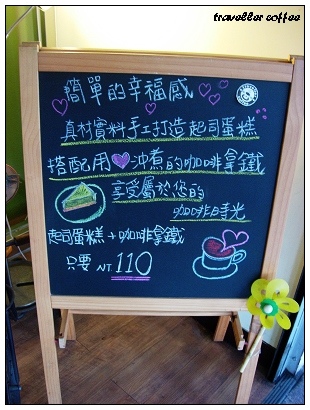 traveller coffee
簡單的幸福感
真材實料手工打造起司蛋糕
搭配用♥沖煮的咖啡拿鐵
享受屬於您的
咖啡時光
起司蛋糕+咖啡拿鐵
只要 NT 110